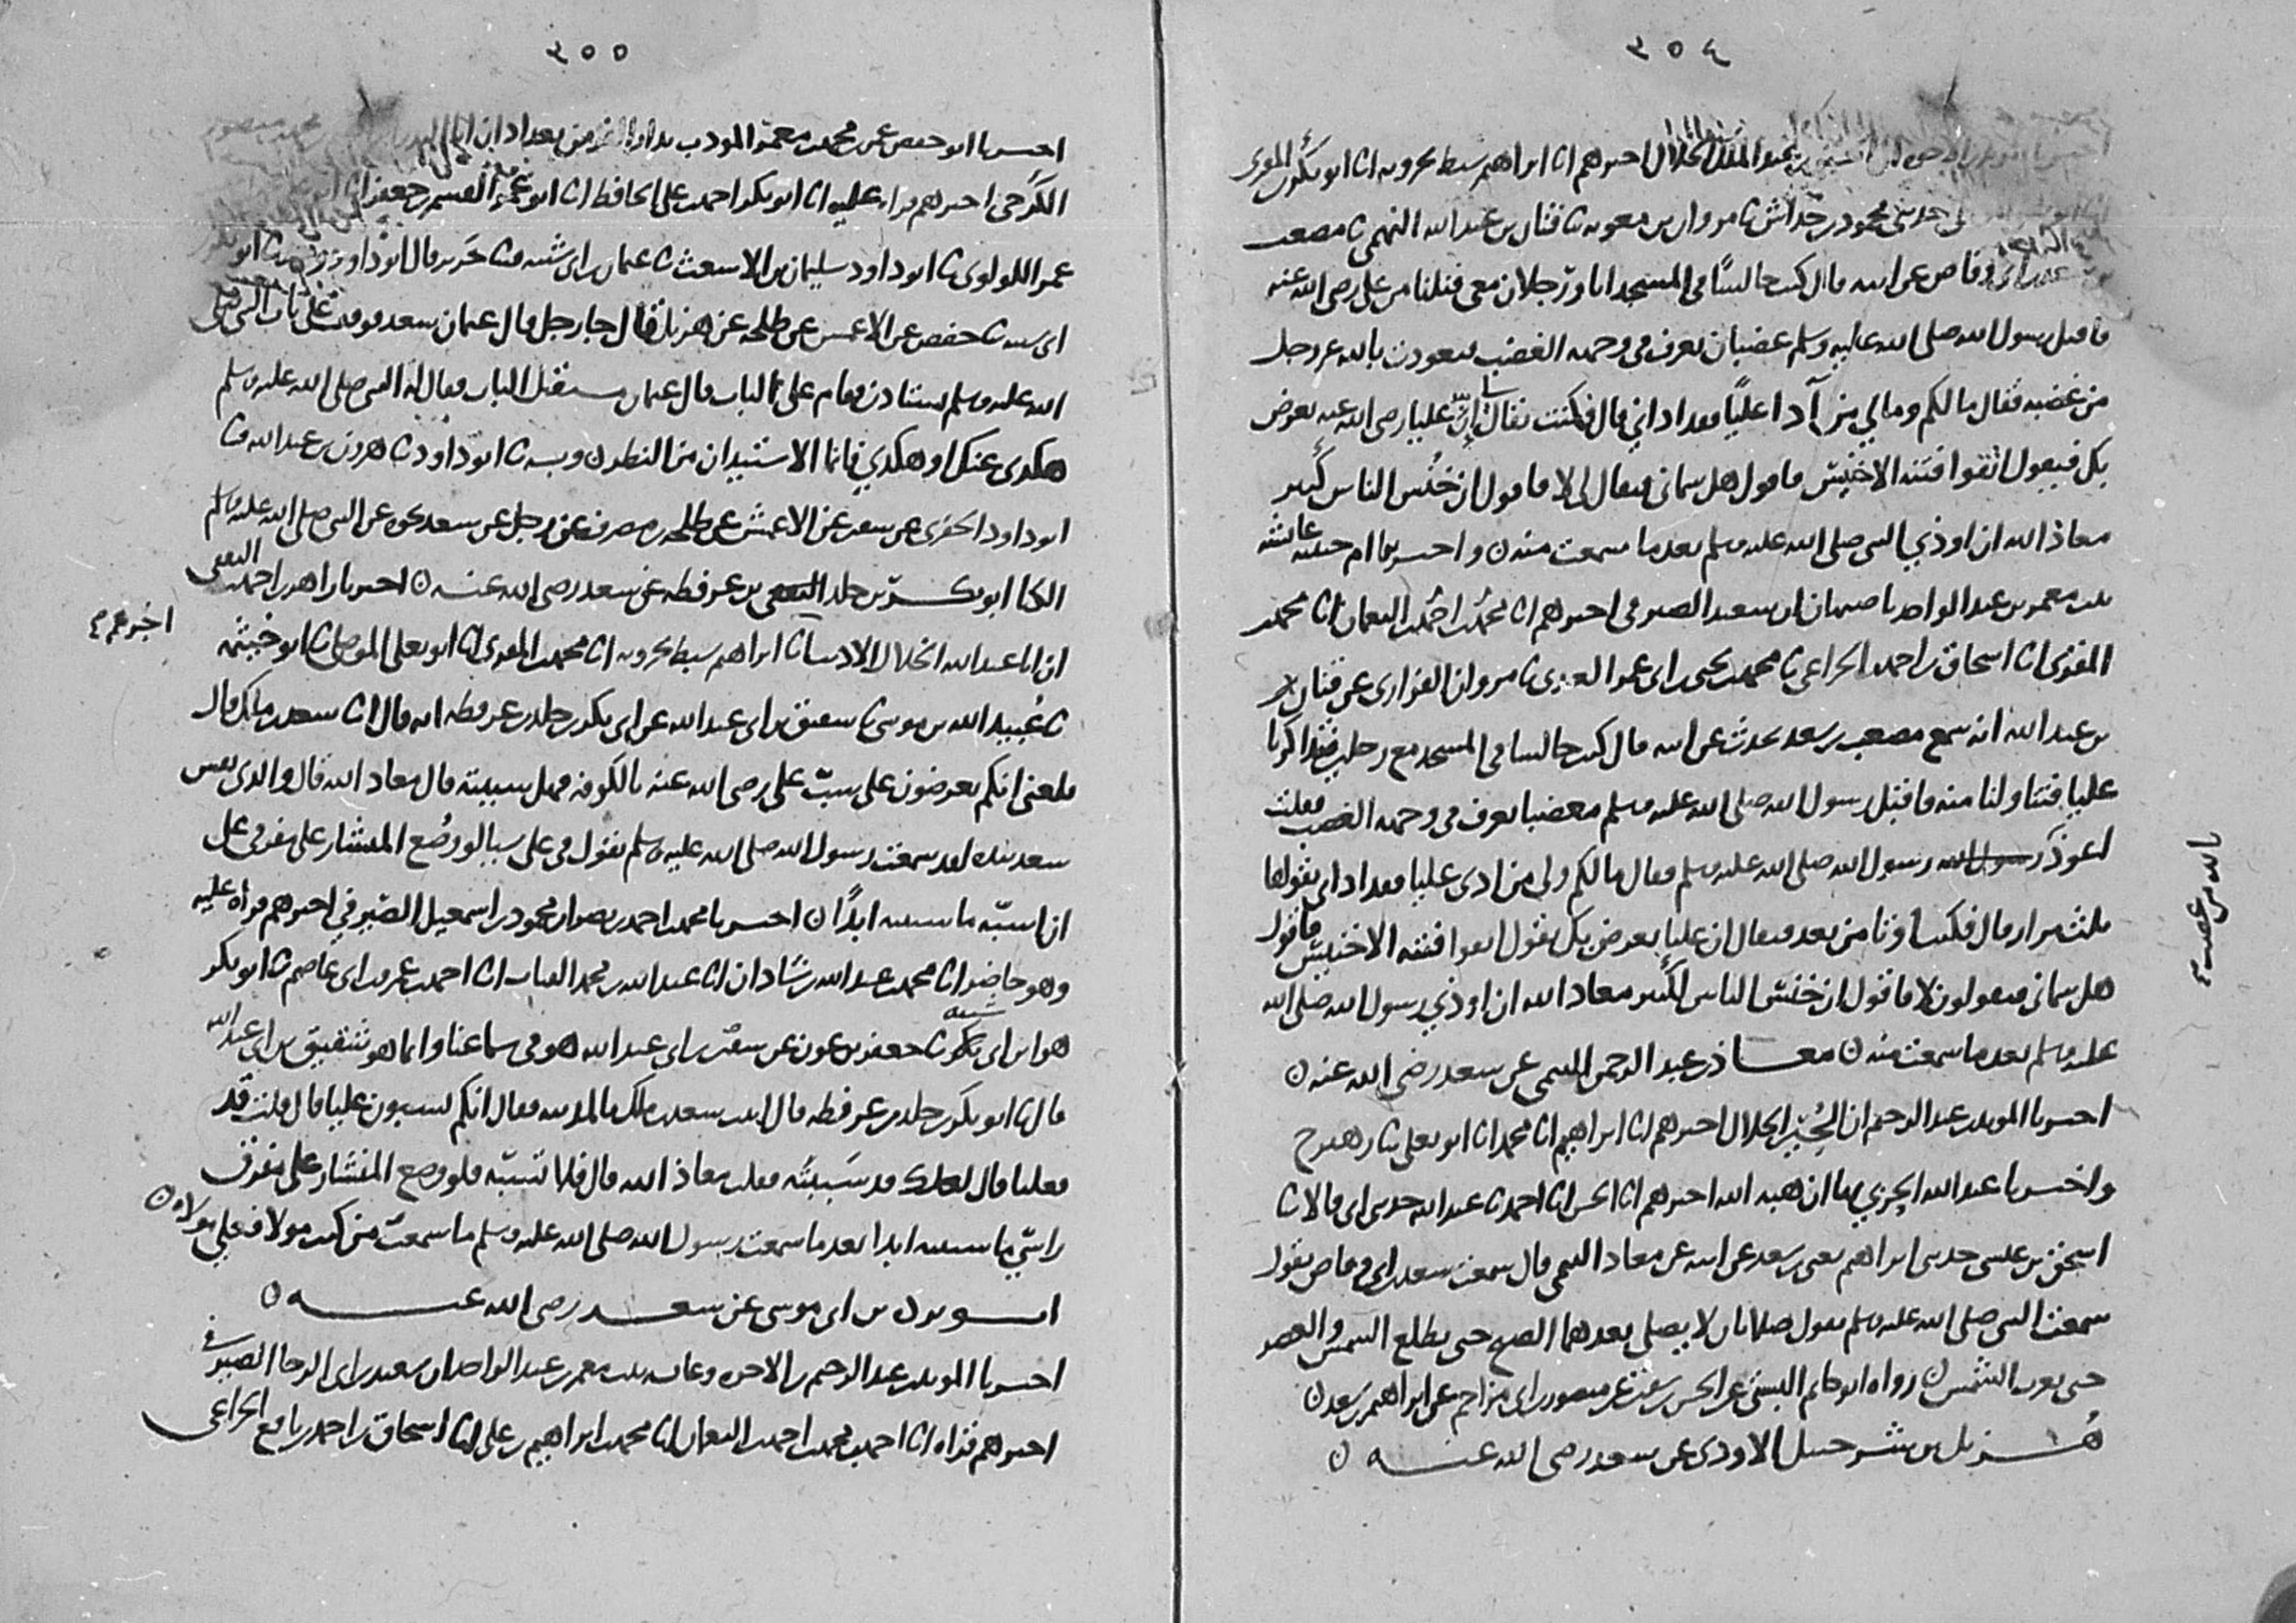 ٣٥٤
عبد الملك الخلال اخبرهم انا ابراهيم سبط بحرويه انا ابو بكر بن المقرى
حدثنى محمود بن خداش نا مروان بن معويه نا قنان بن عبد الله النهمى نا مصعب
وقاص عن ابيه قال كنت جالسًا فى المسجد انا ورجلان معى فنلنا من على رضى الله عنه
فاقبل رسول الله صلى الله عليه وسلم غضبان يعرف فى وجهه الغضب فتعوذت بالله عز وجل
من غضبه فقال ما لكم وما لي من آذا عليًا فقد اذاني قال فكنت يقال ان عليا رضى الله عنه يعرض
بك فيقول اتقوا فتنه الاخينس فاقول هل سمانى فيقال لى لا فاقول ان خنس الناس كثير
معاذ الله ان اوذي النبى صلى الله عليه وسلم بعد ما سمعت منه ن واخبرتنا ام حبيبه عائشه
بنت معمر بن عبد الواحد باصبهان ان سعيد الصيرفى اخبرهم انا محمد بن احمد بن النعمان انا محمد
المقرى انا اسحاق بن احمد الخزاعى نا محمد بن يحيى بن ابى عمر العدنى نا مروان الفزارى عن قنان
بن عبد الله انه سمع مصعب بن سعد يحدث عن ابيه قال كنت جالسا فى المسجد مع رجلين فتذاكرنا
عليا فتناولنا منه فاقبل رسول الله صلى الله عليه وسلم مغضبا يعرف فى وجهه الغضب فقلت
اعوذ بالله من غضب رسول الله صلى الله عليه وسلم فقال ما لكم ولى من اذى عليا فقد اذانى يقولها
ثلث مرار قال فكنت اوتا من بعد فيقال ان عليا يعرض بك يقول اتقوا فتنه الاخينس فاقول
هل سمانى فيقولون لا فاقول ان خنس الناس لكثير معاذ الله ان اوذي رسول الله صلى الله
عليه وسلم بعد ما سمعت منه ن معاذ بن عبد الرحمن التيمى عن سعد رضى الله عنه ن
اخبرنا المويد بن عبد الرحيم ان الحسين الخلال اخبرهم انا ابراهيم انا محمد انا ابو يعلى نا زهير ح
واخبرنا عبد الله الحربي بها ان هبه الله اخبرهم انا الحسن انا احمد نا عبد الله حدثنى ابى قالا نا
اسحق بن عيسى حدثنى ابراهيم يعنى بن سعد عن ابيه عن معاذ التيمى قال سمعت سعد بن ابى وقاص يقول
سمعت النبى صلى الله عليه وسلم يقول صلاتان لا يصلى بعدهما الصبح حتى تطلع الشمس والعصر
حتى تغرب الشمس ن رواه ابو حاتم البستى عن الحسن بن سفين عن منصور بن ابى مزاحم عن ابراهيم بن سعد ن
هزيل بن شرحبيل الاودى عن سعد رضى الله عنه ن
٣٥٥
اخبرنا ابو حفص عمر بن محمد بن معمر المودب بدار القز من بغداد ان ابا البدر
الكرخى اخبرهم قراه عليه انا ابو بكر احمد بن على الحافظ انا ابو عمر القسم بن جعفر
عمرو اللولوى نا ابو داود سليمان بن الاشعث نا عثمان بن ابى شيبه نا جرير قال ابو داود ونا ابو بكر
ابى شيبه نا حفص عن الاعمش عن طلحه عن هزيل قال جا رجل قال عثمان سعد فوقف على باب النبى صلى
الله عليه وسلم يستاذن فقام على الباب قال عثمان مستقبل الباب فقال له النبى صلى الله عليه وسلم
هكذى عنك او هكذي فانما الاستيذان من النظر ن وبه نا ابو داود نا هرون بن عبد الله نا
ابو داود الحفرى عن سفين عن الاعمش عن طلحه بن مصرف عن رجل عن سعد نحوه عن النبى صلى الله عليه وسلم
ابو بكر بن خلد بن عرفطه عن سعد رضى الله عنه ن اخبرنا زاهر بن احمد الثقفى
ان ابا عبد الله الخلال الاديب انا ابراهيم سبط بحرويه انا محمد بن المقرى انا ابو يعلى الموصلى نا ابو خيثمه
اخبرهم
نا عُبيد الله بن موسى نا شقيق بن ابى عبد الله عن ابى بكر بن خلد بن عرفطه انه قال اتا سعد بن مالك فقال
بلغنى انكم تعرضون على سبّ على رضى الله عنه بالكوفه فهل سببته قال معاذ الله قال والذى نفس
سعد بيده لقد سمعت رسول الله صلى الله عليه وسلم يقول فى على شيا لو وضع المنشار على مفرقى على
ان اسبّه ما سببته ابدًا ن اخبرنا محمد بن احمد بن نصر ان محمود بن اسمعيل الصيرفي اخبرهم قراه عليه
وهو حاضر انا محمد بن عبد الله بن شاذان انا عبد الله بن محمد القباب انا احمد بن عمرو بن ابى عاصم نا ابو بكر
هو ابن ابى شيبه نا جعفر بن عون عن سفين بن ابى عبد الله هو فى سماعنا وانما هو شقيق بن ابى عبد الله
قال نا ابو بكر بن خلد بن عرفطه قال اتيت سعد بن ملك بالمدينه فقال انكم تسبون عليا قال قلت قد
فعلنا قال لعلك قد سَببته فقلت معاذ الله قال فلا تسبّه فلو وضع المنشار على مفرق
راسي ما سببته ابدا بعد ما سمعت رسول الله صلى الله عليه وسلم ما سمعت من كنت مولاه فعلي مولاه ن
ابو برده بن ابى موسى عن سعد رضى الله عنه ن
اخبرنا المويد بن عبد الرحيم بن الاخوه وعائشه بنت معمر بن عبد الواحد ان سعيد بن ابى الرجا الصيرفى
اخبرهم قراه انا احمد بن محمد بن احمد بن النعمان انا محمد بن ابراهيم بن على انا اسحاق بن احمد بن نافع الخزاعى